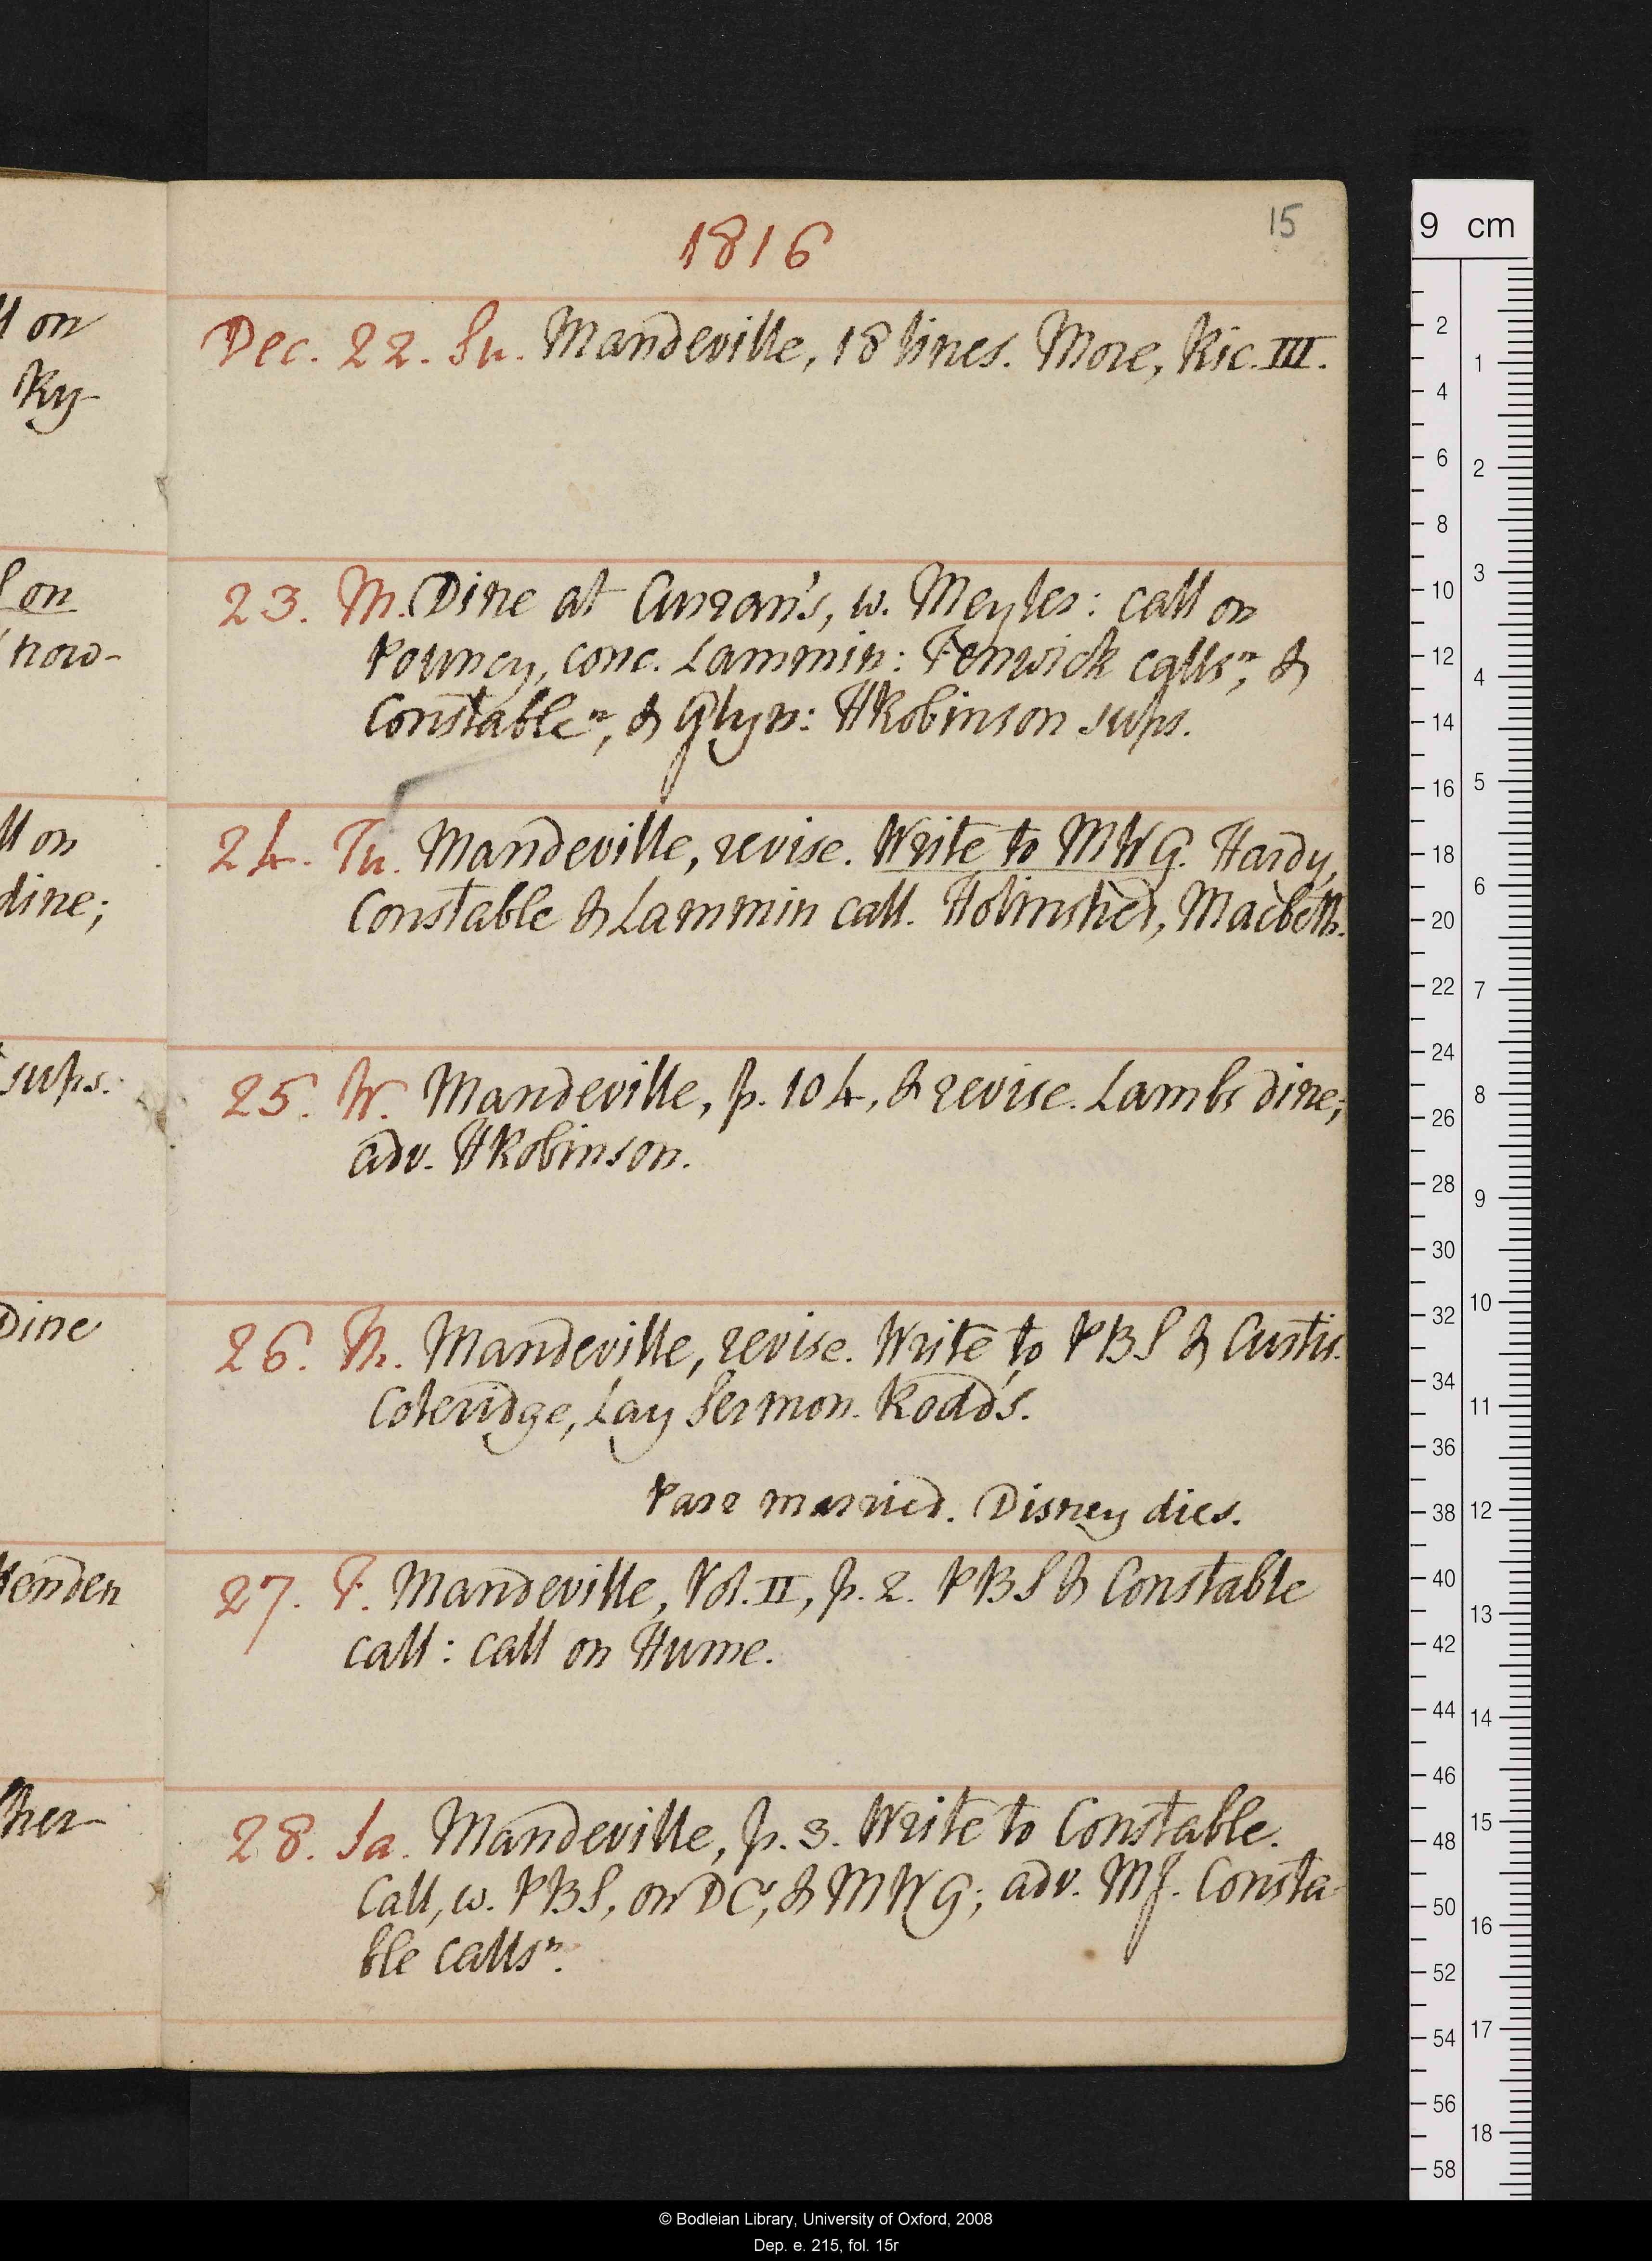 1816
15
Dec. 22. Su. Mandeville, 18 lines. More, Ric. III.
23. M. Dine at Curran's, w. Meyler: call on
Pouncy, conc. Lammin: Fenwick callsⁿ, &
Constableⁿ, & Glyn: HRobinson sups.
24. Tu. Mandeville, revise. Write to MWG. Hardy,
Constable & Lammin call. Holinshed, Macbeth.
25. W. Mandeville, p. 104, & revise. Lambs dine;
adv. HRobinson.
26. Th. Mandeville, revise. Write to PBS & Curtis.
Coleridge, Lay Sermon. Rodd's.
Parr married. Disney dies.
27. F. Mandeville, Vol. II, p. 2. PBS & Constable
call: call on Hume.
28. Sa. Mandeville, p. 3. Write to Constable.
Call, w. PBS, on DCʳ, & MWG; adv. MJ. Consta-
ble callsⁿ.
ll on
Ky-
on
how-
ll on
dine;
sups.
Dine
enden
her-
9 cm
2 4 6 8 10 12 14 16 18 20 22 24 26 28 30 32 34 36 38 40 42 44 46 48 50 52 54 56 58
1 2 3 4 5 6 7 8 9 10 11 12 13 14 15 16 17 18
© Bodleian Library, University of Oxford, 2008
Dep. e. 215, fol. 15r